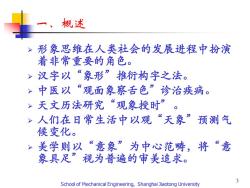 一、概述
形象思维在人类社会的发展进程中扮演
着非常重要的角色。
汉字以“象形”推衍构字之法。
中医以“观面象察舌色”诊治疾病。
天文历法研究“观象授时”。
人们在日常生活中以观“天象”预测气
候变化。
美学则以“意象”为中心范畴，将“意
象具足”视为普遍的审美追求。
School of Mechanical Engineering, Shanghai Jiaotong University
3